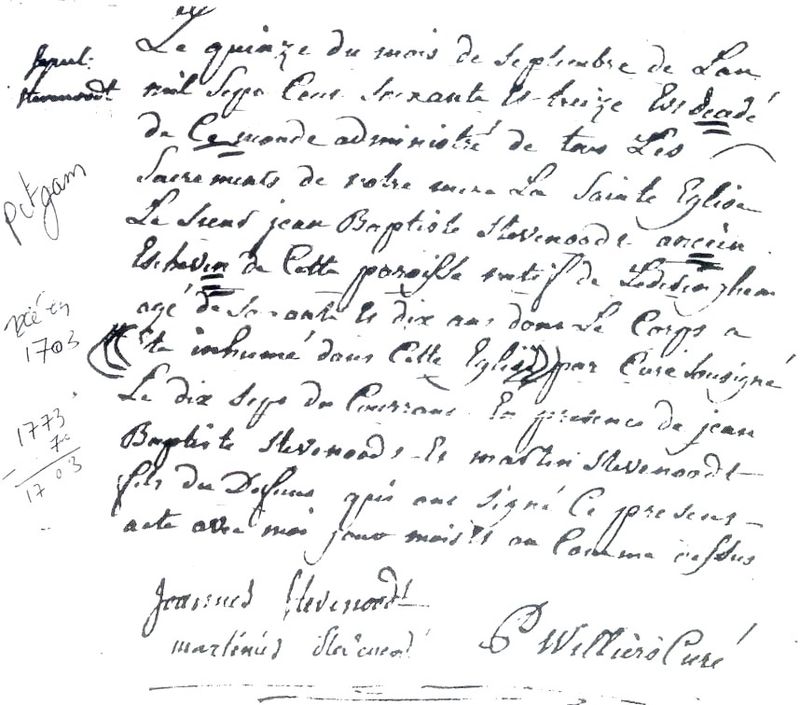 Sepul:
Stevenoodt
Pitgam
né en
1703
1773
70
1703
Le quinze du mois de septembre de Lan
mil Sept Cent Soixante Et treize Est decedé
de Ce monde administré de tous Les
Sacrements de notre mere La Sainte Eglise
Le Sieur jean Baptiste Stevenoodt ancien
Eschevin de Cette paroisse natif de Ledersinghem
agé de Soixante Et dix ans dont Le Corps a
été inhumé dans Cette Eglise par Curé Sousigné
Le dix Sept du Courrant En presence de jean
Baptiste Stevenoodt Et martin Stevenoodt
fils du Defunt qui ont signé Ce present
acte avec moi jour mois Et an Comme dessus
Joannes Stevenoodt
martinus Stevenoodt
P Williers Curé